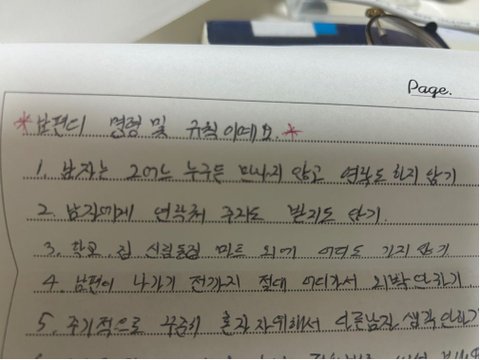 Page.
*남편의 명령 및 규칙이에요.*
1. 남자는 그 어느 누구든 만나지 않고 연락도 하지 않기
2. 남자에게 연락처 주지도 받지도 않기
3. 학교, 집, 신림동집 마트 외에 어디도 가지 않기
4. 남편이 나가기 전까지 절대 어디가서 외박 안하기
5. 주기적으로 꾸준히 혼자 자위해서 다른남자 생각 안하기